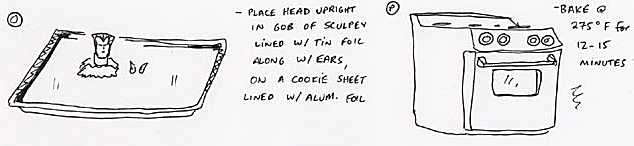 O
- PLACE HEAD UPRIGHT
IN GOB OF SCULPEY
LINED W/ TIN FOIL
ALONG W/ EARS,
ON A COOKIE SHEET
LINED W/ ALUM. FOIL
P
- BAKE @
275° F for
12-15
MINUTES -